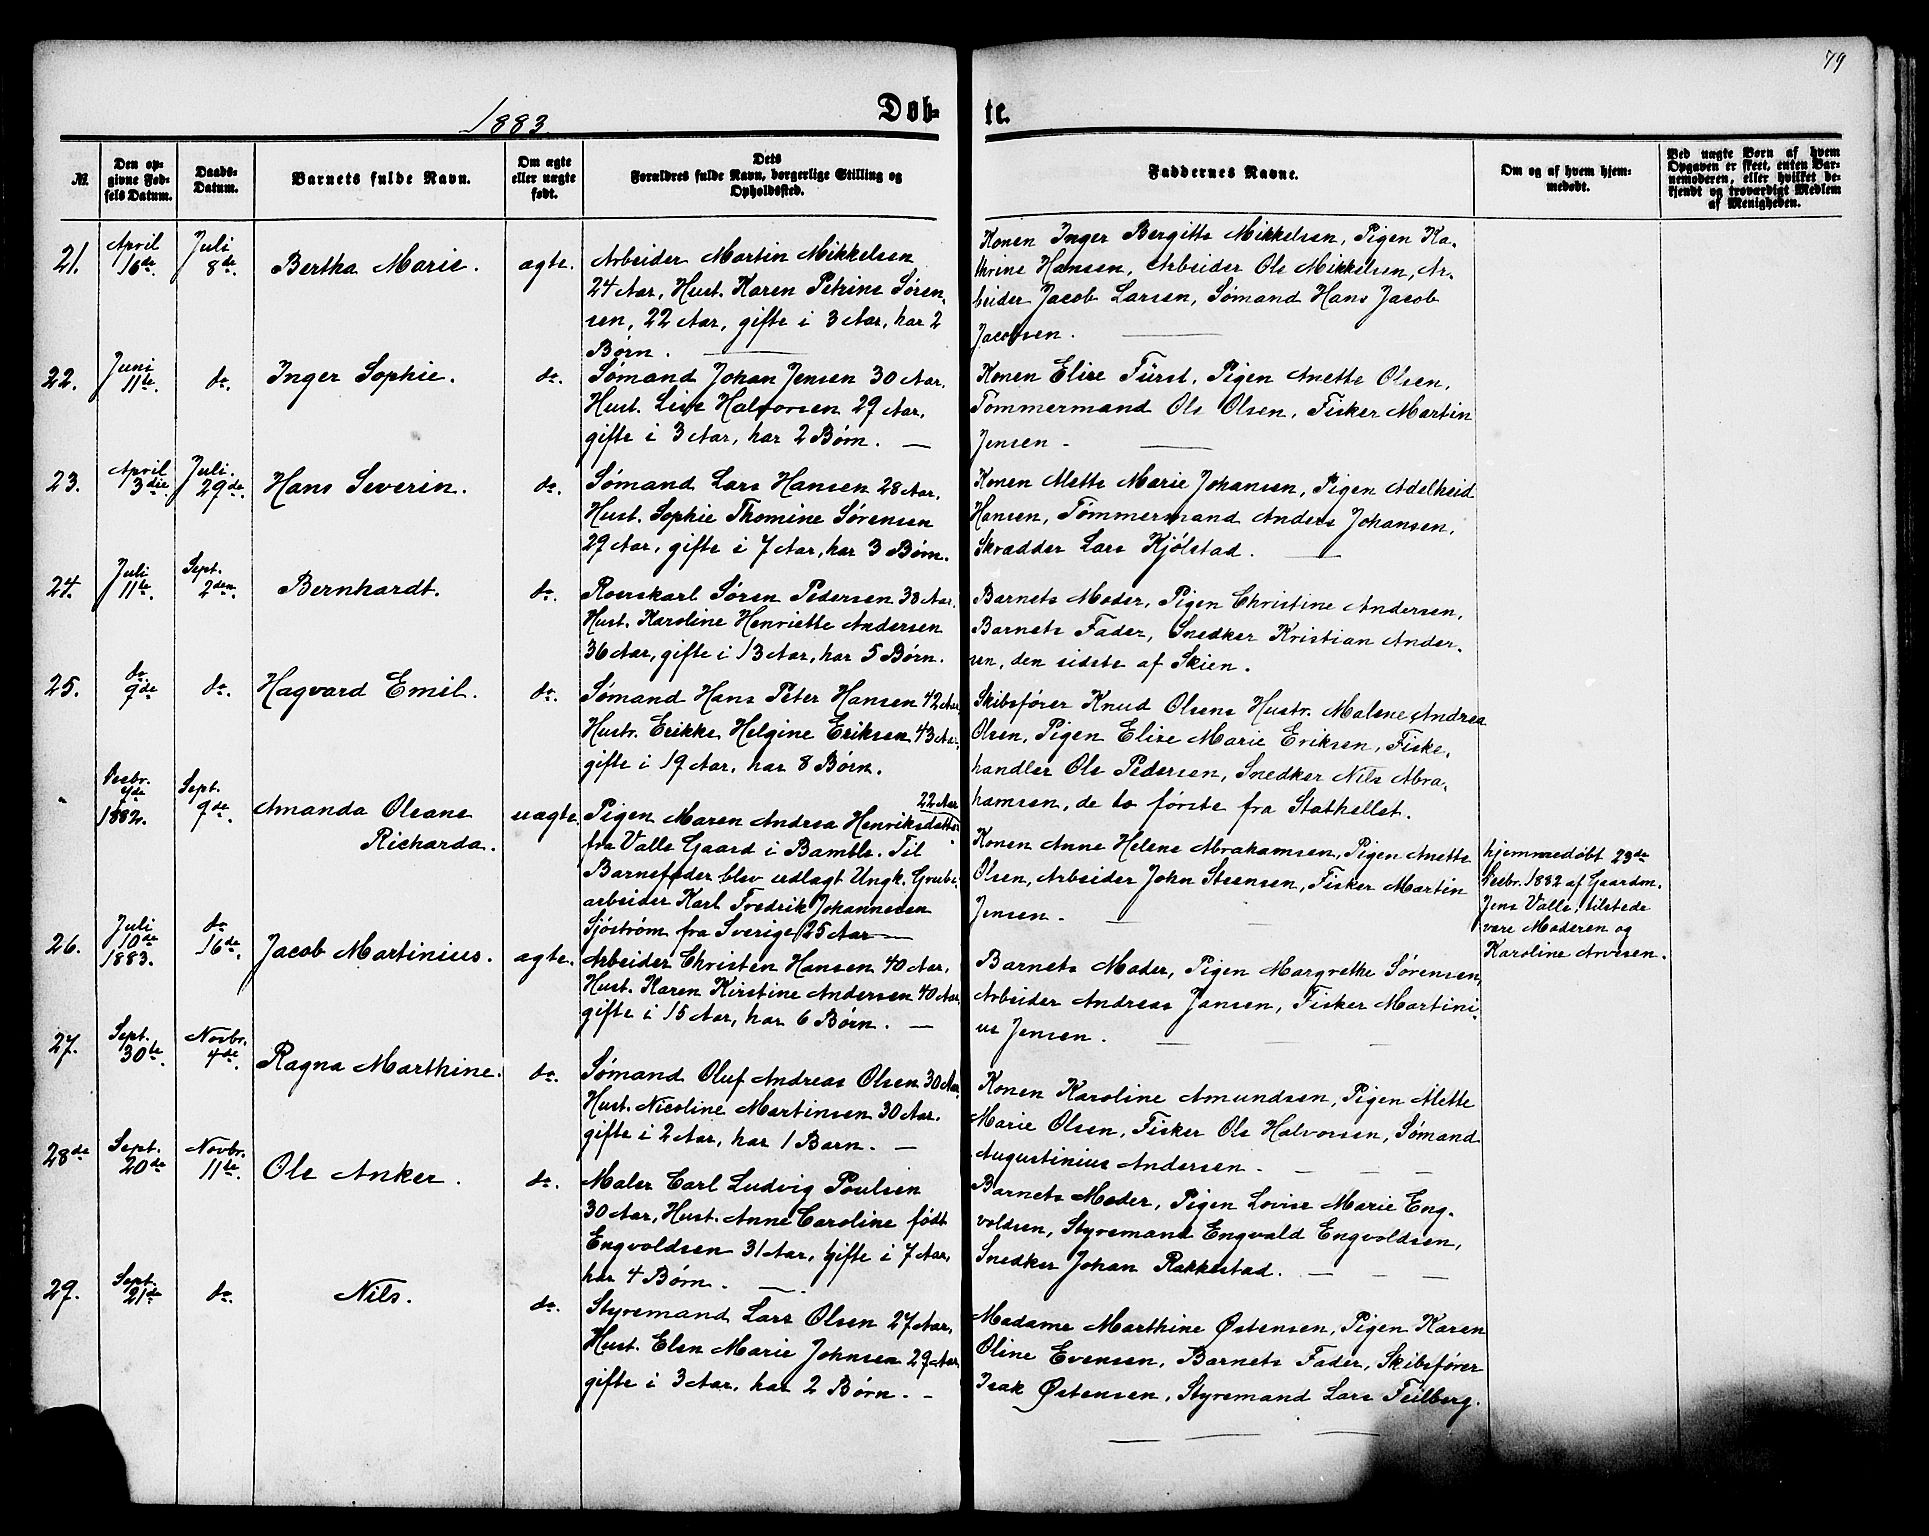 79
1883.
Døb-
te.
№.
Den op-
givne Fød-
sels Datum.
Daabs-
Datum.
Barnets fulde Navn.
Om ægte
eller uægte
født.
Dets
Forældres fulde Navn, borgerlige Stilling og
Opholdssted.
Faddernes Navne.
Om og af hvem hjem-
medøbt.
Ved uægte Børn af hvem
Opgaven er skeet, enten Bar-
nemoderen, eller hvilket be-
kjendt og troværdigt Medlem
af Menigheden.
21.
April
16de.
Juli
8de.
Bertha Marie.
ægte.
Arbeider Martin Mikkelsen
24 Aar, Hust. Karen Petrine Søren-
sen, 22 Aar, gifte i 3 Aar, har 2
Børn.
Konen Inger Bergitte Mikkelsen, Pigen Ka-
thrine Hansen, Arbeider Ole Mikkelsen, Ar-
beider Jacob Larsen, Sømand Hans Jacob
Jacobsen.
22.
Juni
11te.
do.
Inger Sophie.
do.
Sømand Johan Jensen 30 Aar,
Hust. Lise Halvorsen 29 Aar,
gifte i 3 Aar, har 2 Børn.
Konen Elise Fürst, Pigen Anette Olsen,
Tømmermand Ole Olsen, Fisker Martin
Jensen
23.
April
3die.
Juli.
29de.
Hans Severin.
do.
Sømand Lars Hansen 28 Aar,
Hust. Sophie Thomine Sørensen
29 Aar, gifte i 7 Aar, har 3 Børn.
Konen Mette Marie Johansen, Pigen Adelheid
Hansen, Tømmermand Anders Johansen,
Skrædder Lars Kjølstad.
24.
Juli
11te.
Sept.
2den.
Bernhardt.
do.
Roerskarl Søren Pedersen 38 Aar,
Hust. Karoline Henriette Andersen
36 Aar, gifte i 13 Aar, har 5 Børn.
Barnets Moder, Pigen Christine Andersen,
Barnets Fader, Snedker Kristian Ander-
sen, den sidste af Skien.
25.
do.
9de
do.
Hagvard Emil.
do.
Sømand Hans Peter Hansen 42 Aar,
Hustr. Erikke Helgine Eriksen 43 Aar,
gifte i 19 Aar, har 8 Børn.
Skibsfører Knud Olsens Hustr. Malene Andrea
Olsen, Pigen Elise Marie Eriksen, Fiske-
handler Ole Pedersen, Snedker Nils Abra-
hamsen, de to første fra Stathellet.
Decbr.
4de
1882.
Sept.
9de.
Amanda Oleane
Richarda.
uægte.
22 Aar
Pigen Maren Andrea Henriksdatter
fra Valle Gaard i Bamble. Til
Barnefader blev udlagt Ungk. Grube-
arbeider Karl Fredrik Johannesen
Sjöström fra Sverige, 25 Aar
Konen Anne Helene Abrahamsen, Pigen Anette
Olsen, Arbeider John Steensen, Fisker Martin
Jensen.
hjemmedøbt 23de
Decbr. 1882 af Gaardm.
Jens Valle; tilstede
vare Moderen og
Karoline Arvesen.
26.
Juli
10de
1883.
do.
16de.
Jacob Martinius.
ægte.
Arbeider Christen Hansen 40 Aar,
Hust. Karen Kirstine Andersen 40 Aar,
gifte i 15 Aar, har 6 Børn.
Barnets Moder, Pigen Margrethe Sørensen,
Arbeider Andreas Jansen, Fisker Martini-
us Jensen.
27.
Sept.
30te.
Novbr.
4de.
Ragna Marthine.
do.
Sømand Oluf Andreas Olsen 30 Aar,
Hust. Nicoline Martinsen 30 Aar.
gifte i 2 Aar, har 1 Barn.
Konen Karoline Amundsen, Pigen Mette
Marie Olsen, Fisker Ole Halvorsen, Sømand
Augustinius Andersen
28de
Sept.
20de
Novbr.
11te.
Ole Anker.
do.
Maler Carl Ludvig Poulsen
30 Aar, Hust. Anne Caroline født
Engvoldsen 31 Aar, gifte i 7 Aar,
har 4 Børn.
Barnets Moder, Pigen Lovise Marie Eng-
voldsen, Styremand Engvald Engvoldsen,
Snedker Johan Rakkestad.
29.
Sept.
21de
do.
Nils.
do.
Styremand Lars Olsen 27 Aar,
Hust. Elen Marie Johnsen 29 Aar,
gifte i 3 Aar, har 2 Børn.
Madame Marthine Østensen, Pigen Karen
Oline Evensen, Barnets Fader, Skibsfører
Isak Østensen, Styremand Lars Feilberg.